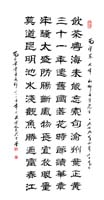 飲茶粵海未能忘索句渝州葉正黃
三十一年還舊國落花時節讀華章
牢騷太盛防腸斷風物長宜放眼量
莫道昆明池水淺觀魚勝過富春江